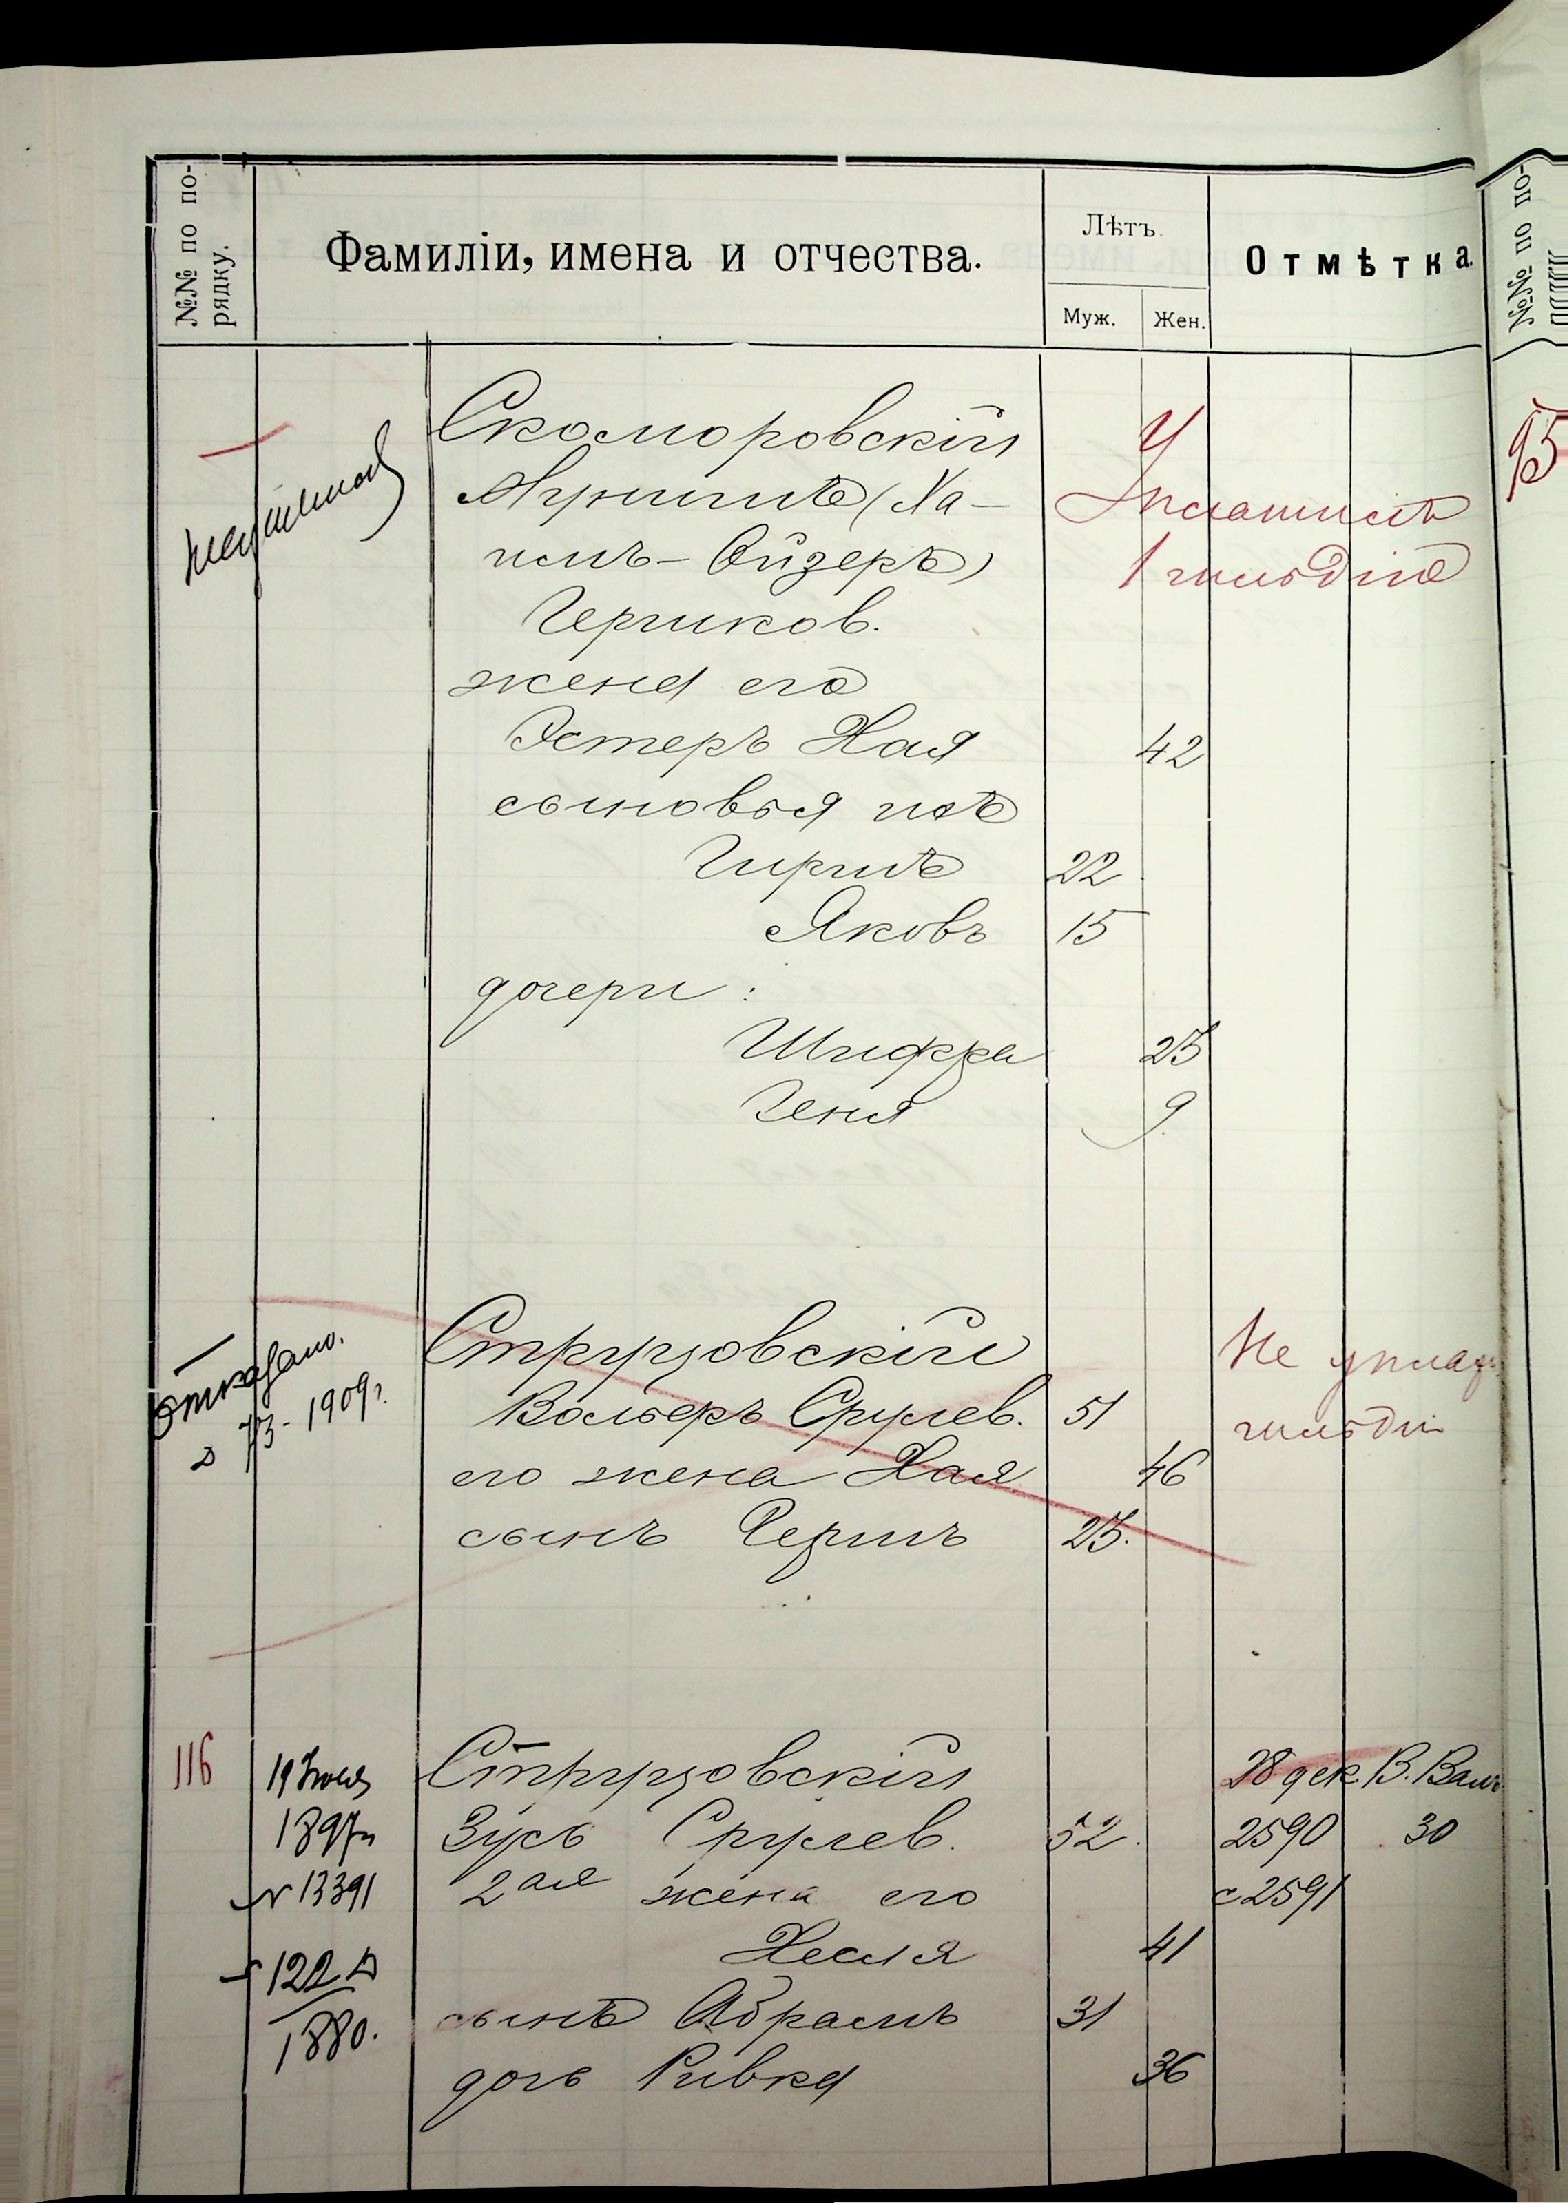 №№ по по-
рядку.
Фамиліи, имена и отчества.
Лѣтъ.
Муж.
Жен.
Отмѣтка.
№№ по по-
95
Скоморовскій
(Ха-
имъ-Ойзеръ)
Гершков.
Уплатилъ
1 гильдію
жена его
Эстеръ Хая 42
сыновья ихъ
Гиршъ 22
Яковъ 15
дочери:
Шифра 25
Геня 9
отказано.
1909 г.
Струцовскій
Вольфъ Срулев. 51
его жена Хая 46
сынъ Гершъ 25.
Не уплат.
гильдіи
116
19 Іюля
1897 г.
№ 13391
122
1880.
Струцовскій
Зусь Срулев. 52.
2ая жена его
Хесля 41
сынъ Абрамъ 31
дочь Ривка 36
28 дек. В.
2590 30
с 2591